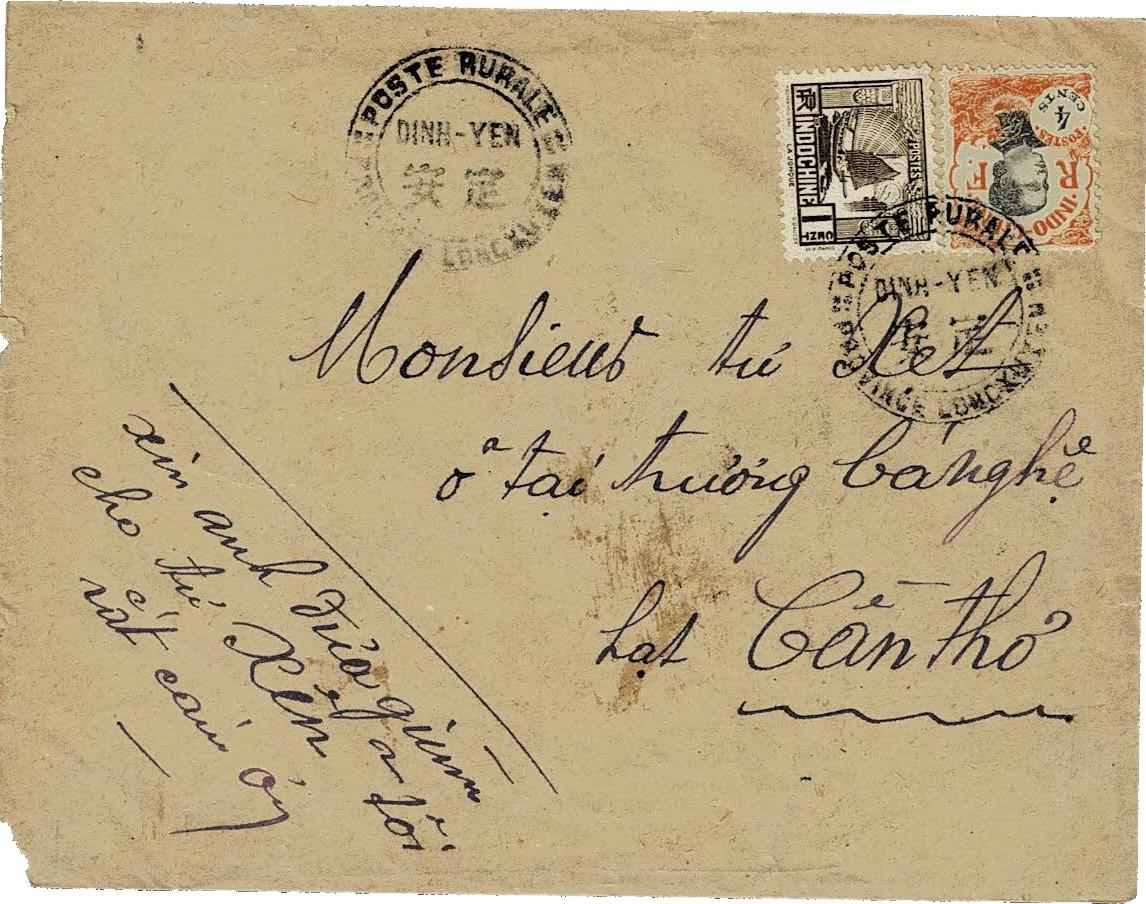 POSTE RURALE
DINH-YEN
安定
LONGXUYEN
RF INDOCHINE
POSTES
LA JONQUE
1 CENT
4 CENTS
POSTES
R F
INDO
POSTE RURALE
DINH-YEN
安定
PROVINCE LONGXUYEN
Monsieur tư Két
ở tại trường bá nghệ
hạt Cần Thơ
xin anh đưa giùm
cho tư Xén
rất cám ơn